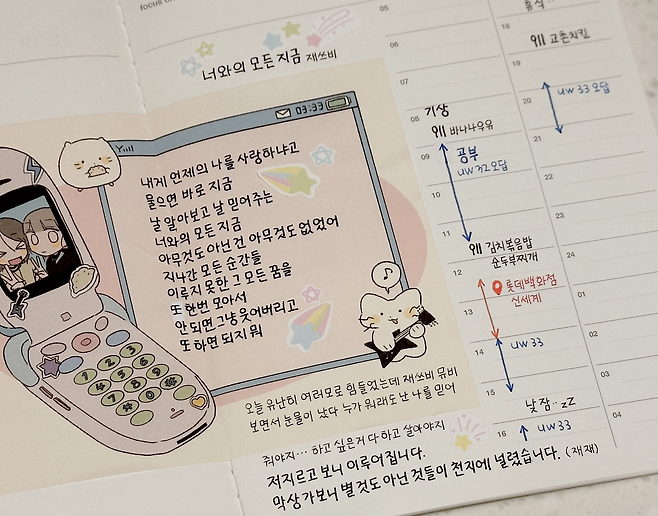 focus on
너와의 모든 지금 재쓰비
03:33
내게 언제의 나를 사랑하냐고
물으면 바로 지금
날 알아보고 날 믿어주는
너와의 모든 지금
아무것도 아닌 건 아무것도 없었어
지나간 모든 순간들
이루지 못한 그 모든 꿈을
또 한번 모아서
안 되면 그냥 웃어버리고
또 하면 되지 뭐
오늘 유난히 여러모로 힘들었는데 재쓰비 뮤비
보면서 눈물이 났다 누가 뭐래도 난 나를 믿어
줘야지… 하고 싶은거 다 하고 살아야지
저지르고 보니 이루어집니다.
막상 가보니 별 것도 아닌 것들이 천지에 널렸습니다. (재재)
05
06
07
08 기상
먹 바나나우유
09 공부
uw 32 오답
10
11
먹 김치볶음밥
순두부찌개
12
롯데백화점
신세계
13
14 uw 33
15
낮잠.. zZ
16 uw 33
휴식..
18
먹 교촌치킨
19
20 uw 33 오답
21
22
23
24
01
02
03
04